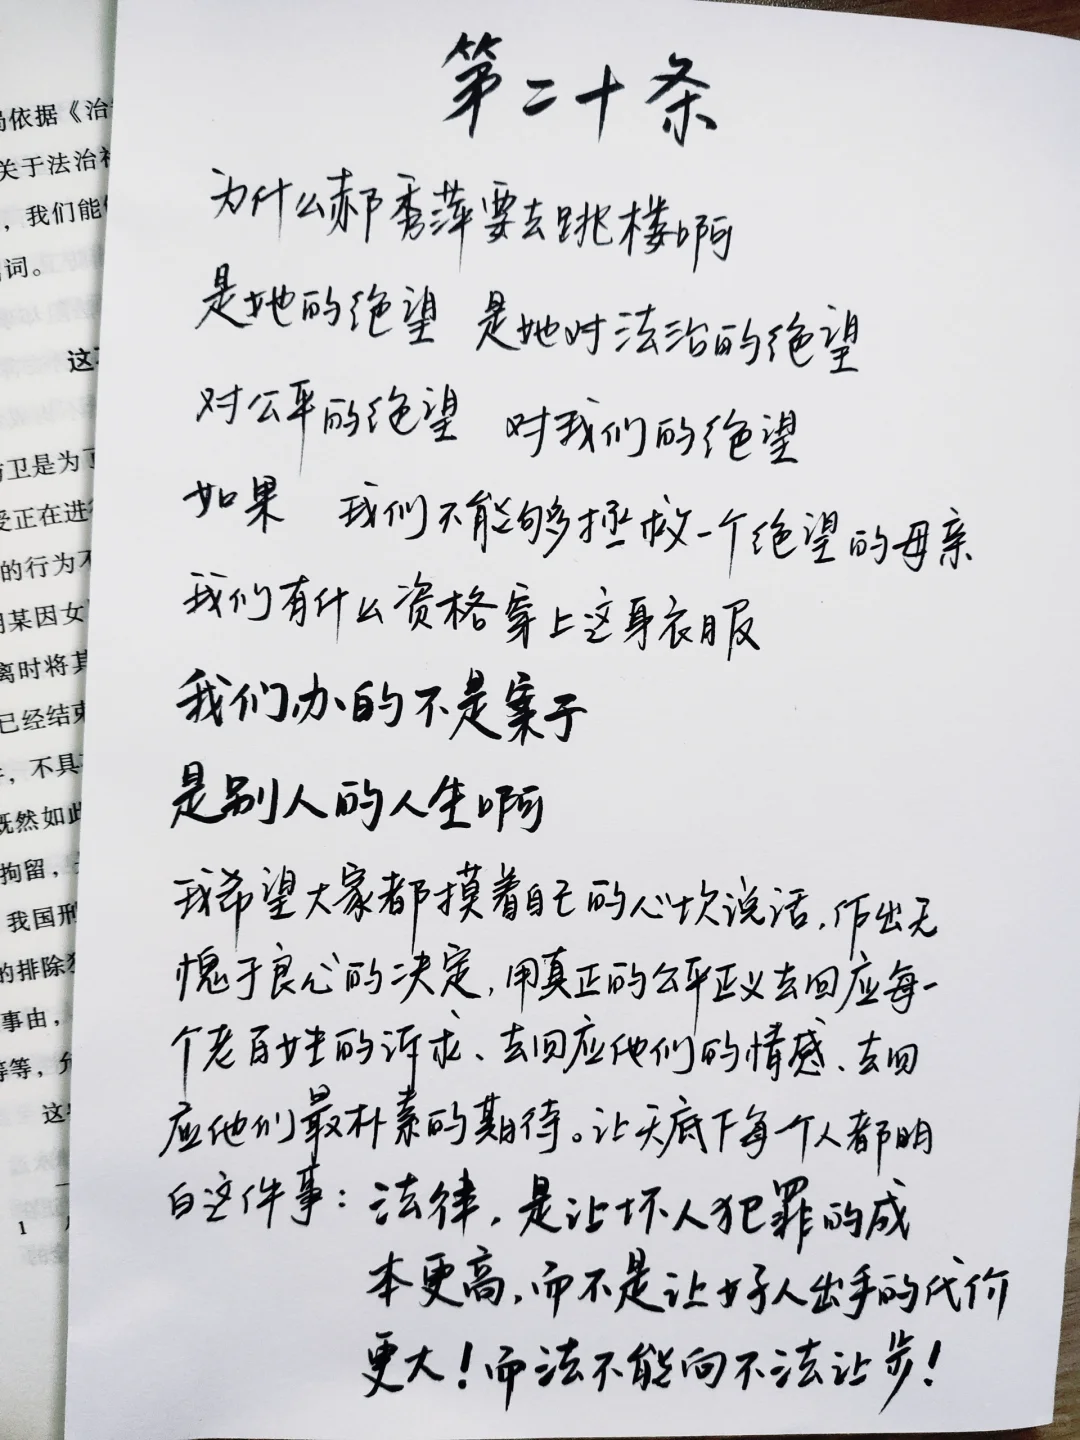 第二十条
为什么郝秀萍要去跳楼啊
是她的绝望 是她对法治的绝望
对公平的绝望 对我们的绝望
如果 我们不能够拯救一个绝望的母亲
我们有什么资格穿上这身衣服
我们办的不是案子
是别人的人生啊
我希望大家都摸着自己的心坎说话,作出无
愧于良心的决定,用真正的公平正义去回应每一
个老百姓的诉求、去回应他们的情感、去回
应他们最朴素的期待。让天底下每一个人都明
白这件事:法律,是让坏人犯罪的成
本更高,而不是让好人出手的代价
更大!而法不能向不法让步!
局依据《治
关于法治社
,我们能
词。
这
卫是为了
受正在进行
的行为不
某因女
离时将其
已经结束
,不具
既然如此
拘留,
我国刑
的排除
事由,
等等,允
这
1